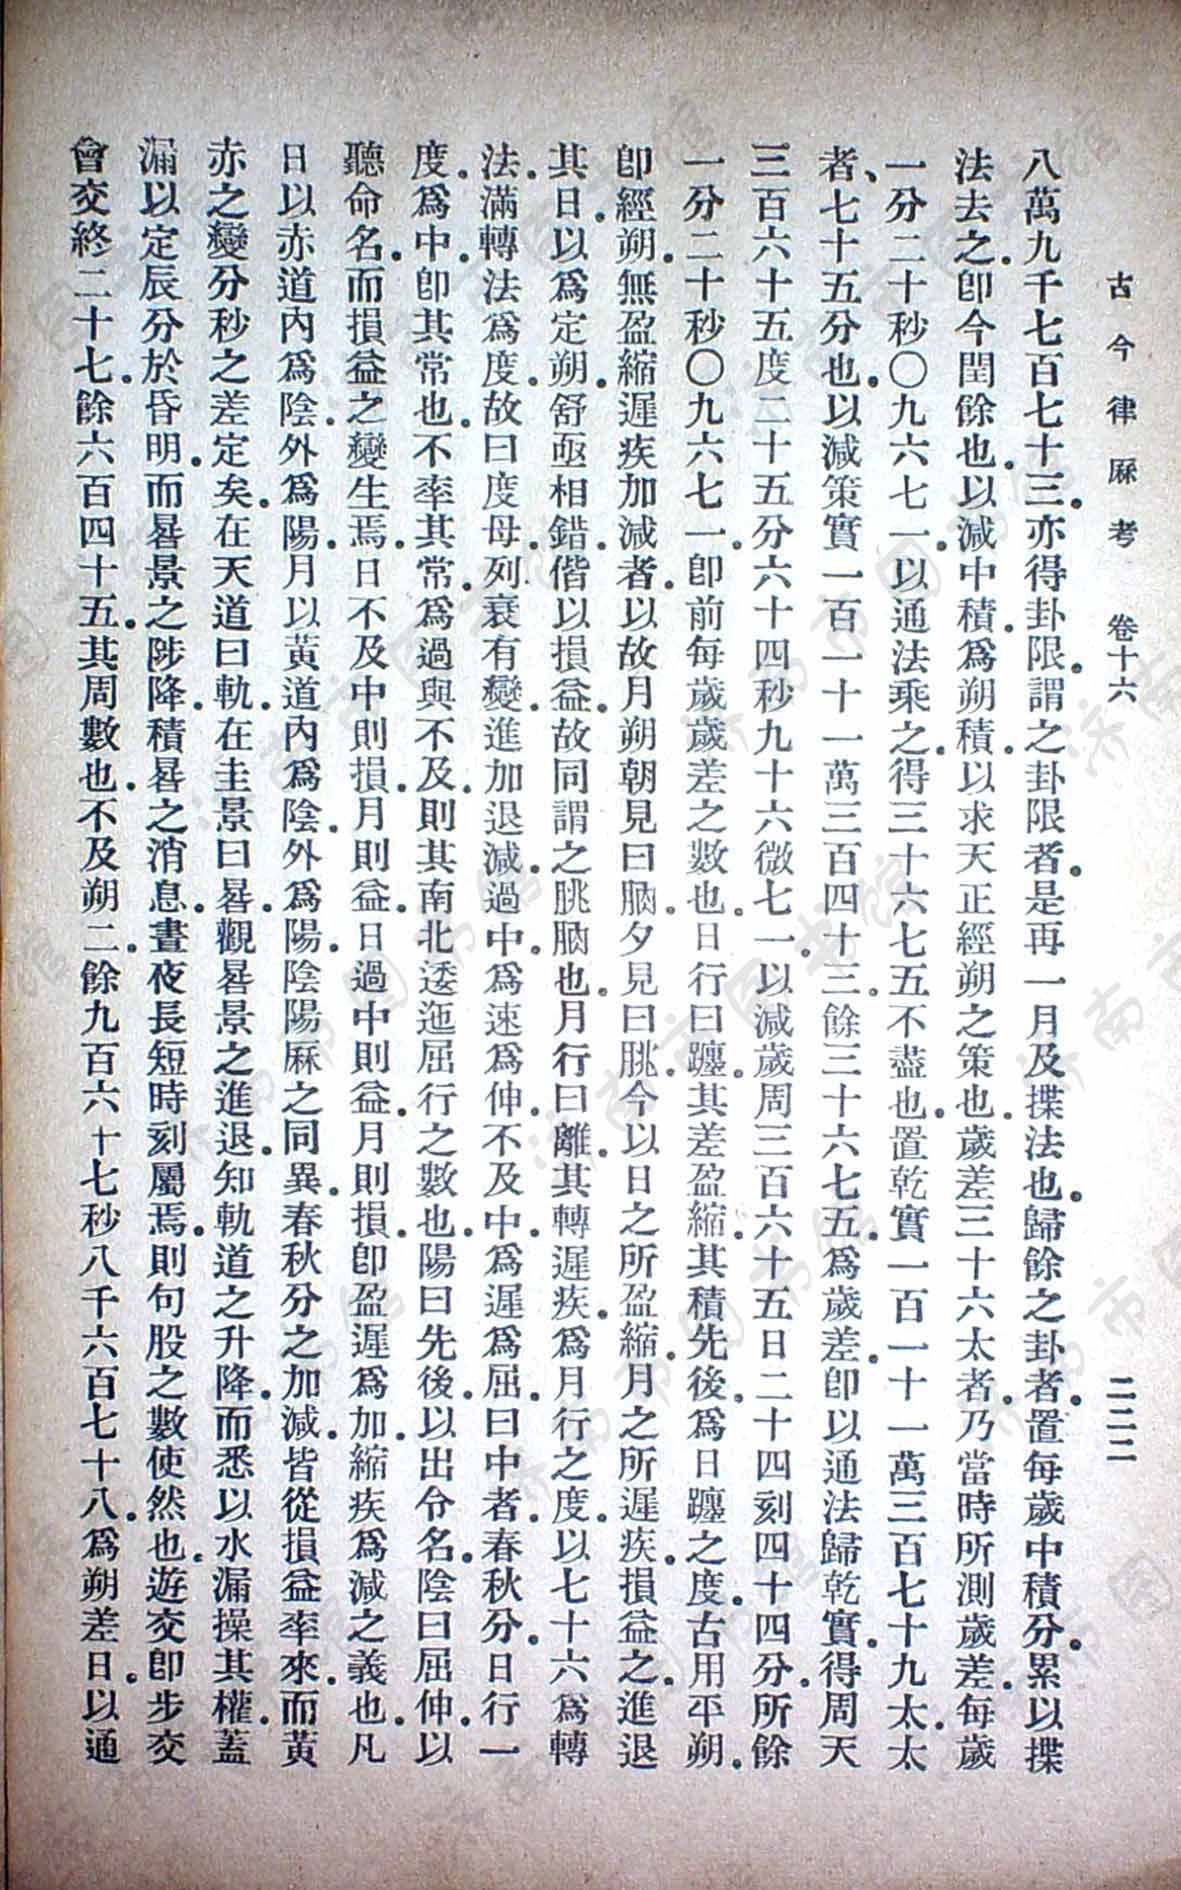 古今律厤考　卷十六　二二二
八萬九千七百七十三。亦得卦限。謂之卦限者。是再一月及揲法也。歸餘之卦者。置每歲中積分。累以揲
法去之。卽今閏餘也。以減中積。爲朔積。以求天正經朔之策也。歲差三十六太者。乃當時所測歲差。每歲
一分二十秒〇九六七一。以通法乘之。得三十六七五不盡也。置乾實一百一十一萬三百七十九太。太
者、七十五分也。以減策實一百一十一萬三百四十三。餘三十六七五。爲歲差。卽以通法歸乾實。得周天
三百六十五度二十五分六十四秒九十六微七一。以減歲周三百六十五日二十四刻四十四分。所餘
一分二十秒〇九六七一。卽前每歲歲差之數也。日行曰躔。其差盈縮。其積先後。爲日躔之度。古用平朔。
卽經朔。無盈縮遲疾加減者。以故月朔朝見曰朒。夕見曰朓。今以日之所盈縮。月之所遲疾。損益之。進退
其日。以爲定朔。舒亟相錯。偕以損益。故同謂之朓朒也。月行曰離。其轉遲疾。爲月行之度。以七十六爲轉
法。滿轉法爲度。故曰度母。列衰有變。進加退減。過中。爲速爲伸。不及中。爲遲爲屈。曰中者。春秋分。日行一
度。爲中。卽其常也。不率其常。爲過與不及。則其南北逶迤屈行之數也。陽曰先後。以出令名。陰曰屈伸。以
聽命名。而損益之變生焉。日不及中則損。月則益。日過中則益。月則損。卽盈遲爲加。縮疾爲減之義也。凡
日以赤道內爲陰。外爲陽。月以黃道內爲陰。外爲陽。陰陽厤之同異。春秋分之加減。皆從損益率來。而黃
赤之變。分秒之差定矣。在天道曰軌。在圭景曰晷。觀晷景之進退。知軌道之升降。而悉以水漏操其權。蓋
漏以定辰分於昏明。而晷景之陟降。積晷之消息。晝夜長短時刻屬焉。則句股之數使然也。遊交卽步交
會交終二十七。餘六百四十五。其周數也。不及朔二。餘九百六十七秒八千六百七十八。爲朔差日。以通